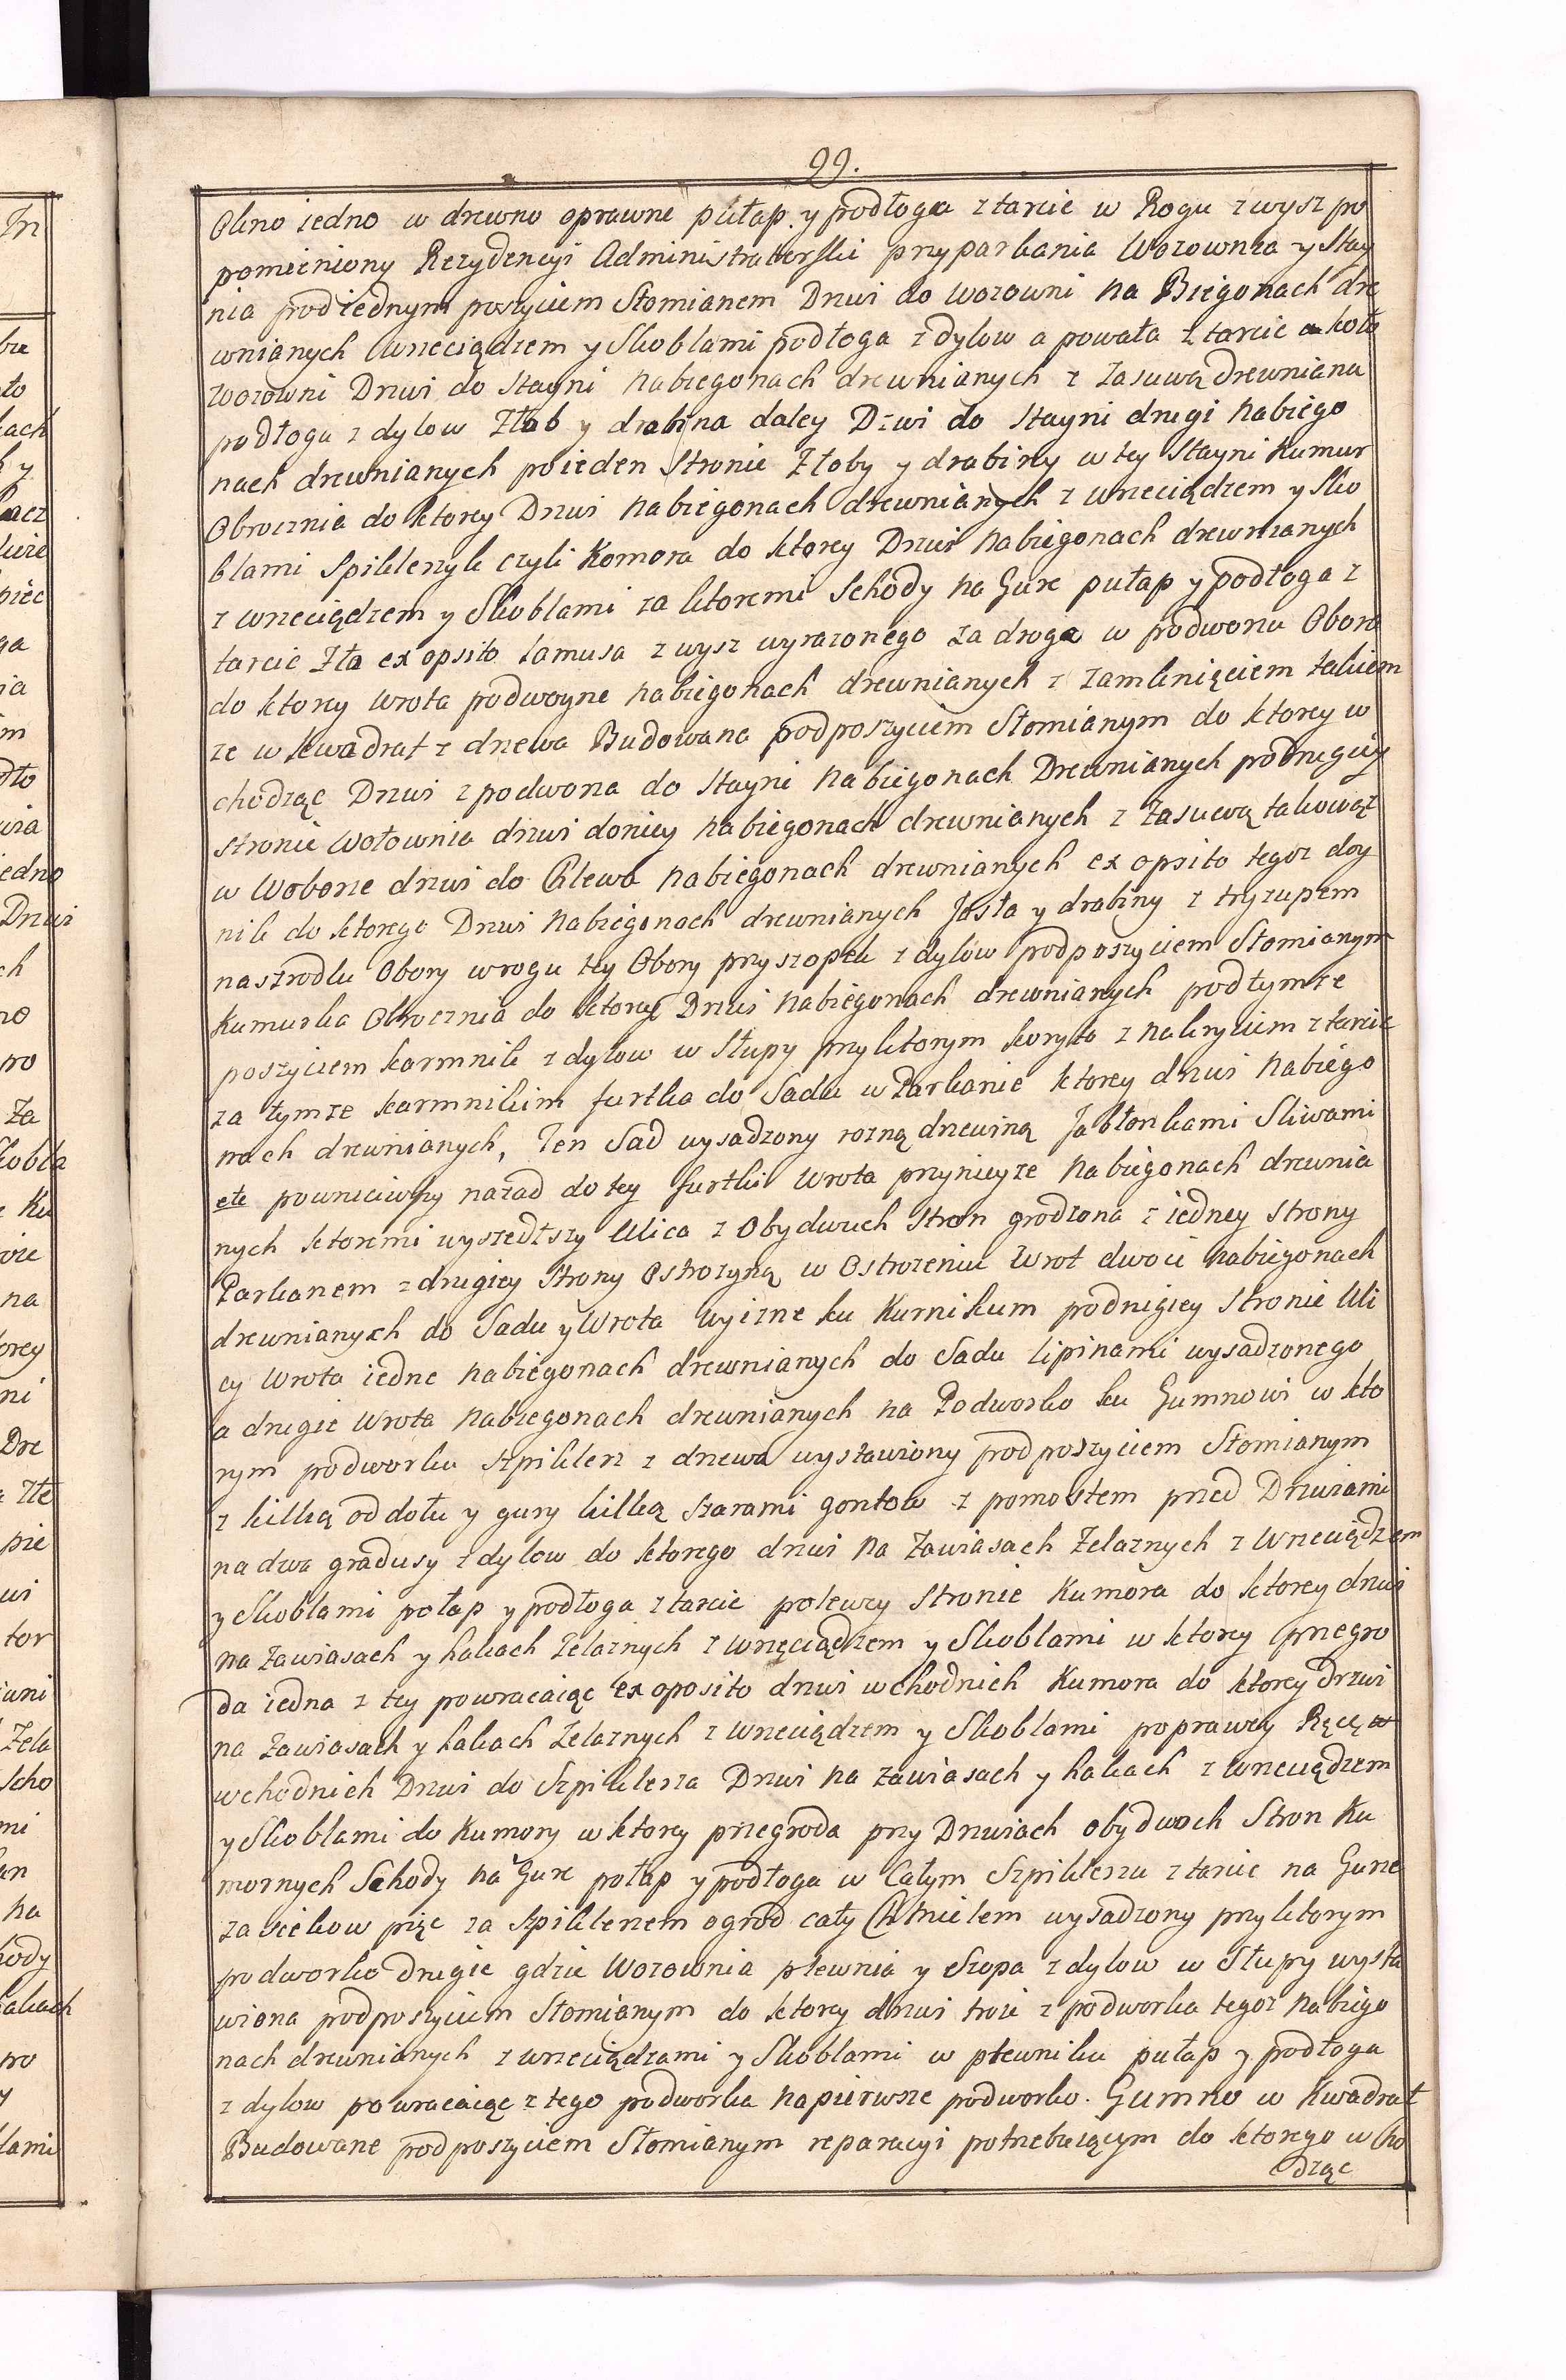 99.
Okno iedno w drewno oprawne pułap y podłoga z tarcic w Rogu zwysz po
pomieniony Rezydencyi Administraterski przyparkania Wozownia y Stay
nia pod iednym poszyciem Słomianem Drzwi do Wozowni na Biegonach dre
wnianych wrzeciądzem y Skoblami podłoga z dylow a powała z tarcic około
Wozowni Drzwi do Stayni nabiegonach drewnianych z Zasuwą drewniana
podłoga z dylow Złob y drabina daley Dzwi do Stayni drugi nabiego
nach drewnianych poieden Stronie Złoby y drabiny w tey Stayni Kumur
Obrocznia do ktorey Drzwi nabiegonach drewnianych z wrzeciądzem y Sko
blami Spiklerzyk czyli Komora do ktorey Drzwi nabiegonach drewnianych
z wrzeciądzem y Skoblami za ktoremi Schody na Gure pułap y podłoga z
tarcic Zła ex opsito Lamusa zwysz wyrazonego za droga w podworzu Obora
do ktorey wrota podwoyne nabiegonach drewnianych z Zamknięciem takiem
ze w kwadrat z drzewa Budowana podposzyciem Słomianym do ktorey w
chodząc Drzwi z podworza do Stayni nabiegonach Drewnianych podrugiey
stronie Wołownia drzwi doniey nabiegonach drewnianych z Zasuwą takowąz
w Woborze drzwi do Chlewa nabiegonach drewnianych ex opsito tegoz doy
nik do ktorego Drzwi nabiegonach drewnianych Jasła y drabiny z tryzupem
naszrodku Obory wrogu tey Obory przyszopek z dylow podposzyciem Słomianym
Kumurka Obrocznia do ktorey Drzwi nabiegonach drewnianych podtymze
poszyciem karmnik z dylow w Słupy przyktorym koryto z nakryciem z tarcic
za tymze karmnikiem furtka do Sadu w Parkanie ktorey drzwi nabiego
nach drewnianych, Ten Sad wysadzony rozną drzewiną Jabłonkami Sliwami
etc powrociwszy nazad do tey furtki Wrota przynieyze nabiegonach drewnia
nych ktoremi wyszedszy Ulica z Obydwuch Stron grodzona z iedney Strony
Parkanem z drugiey Strony Ostrozyną w Ostrozeniu Wrot dwoie nabiegonach
drewnianych do Sadu y Wrota wyizne ku Kurnikum podrugiey Stronie Uli
cy Wrota iedne nabiegonach drewnianych do Sadu Lipinami wysadzonego
a drugie Wrota nabiegonach drewnianych na Podworko ku Gumnowi w kto
rym podworku Szpiklerz z drzewa wystawiony podposzyciem Słomianym
z kilką od dołu y gury kilką Szarami gontow z pomostem przed Drzwiami
na dwa gradusy z dylow do ktorego drzwi na Zawiasach Zelaznych z Wrzeciądzem
y Skoblami połap y podłoga z tarcic polewey Stronie Kumora do ktorey drzwi
na Zawiasach y hakach Zelaznych z wrzęciądzem y Skoblami w ktorey przegro
da iedna z tey powracaiąc ex oposito drzwi wchodnich Kumora do ktorey drzwi
na Zawiasach y hakach Zelaznych z wrzeciądzem y Skoblami poprawey Ręcę w
wchodnich Drzwi do Szpiklerza Drzwi na zawiasach y hakach z wrzeciądzem
y Skoblami do Kumory w ktorey przegroda przy Drzwiach obydwoch Stron Ku
mornych Schody na Gure połap y podłoga w Całym Szpiklerzu z tarcic na Gurze
zasiekow pięc za szpiklerzem ogrod cały Chmielem wysadzony przyktorym
podworko drugie gdzie Wozownia plewnia y Szopa z dylow w Słupy wysta
wiona podposzyciem Słomianym do ktorey drzwi troie z podworka tegoz nabiego
nach drewnianych z wrzeciądzami y Skoblami w plewniku pułap y podłoga
z dylow powracaiąc z tego podworka napierwsze podworko. Gumno w Kwadrat
Budowane podposzyciem Słomianym reparacyi potrzebuiącym do ktorego wcho
dząc